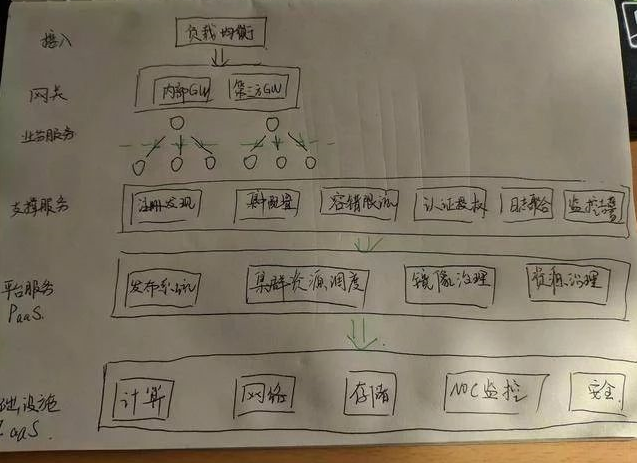 接入
负载均衡
网关
内部GW 第三方GW
业务服务
支撑服务
注册发现 集中配置 容错限流 认证授权 日志聚合 监控告警
平台服务
PaaS.
发布系统 集群资源调度 镜像治理 资源治理
础设施
IaaS.
计算 网络 存储 NOC监控 安全